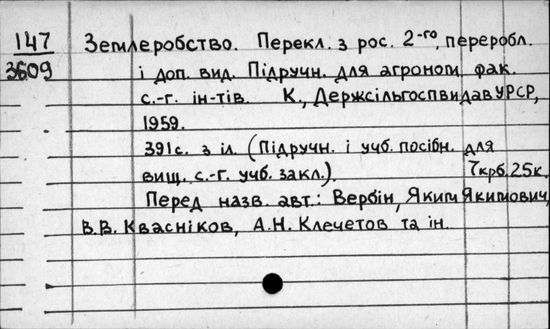 147
3609
Землеробство. Перекл. з рос. 2-го, переробл.
і доп. вид. Підручн. для агроном. фак.
с.-г. ін-тів. К., Держсільгоспвидав УРСР,
1959.
391с. з іл. (Підручн. і учб. посібн. для
вищ. с.-г. учб. закл.). 7крб. 25к.
Перед назв. авт.: Вербін, Яким Якимович,
В.В. Квасніков, А.Н. Клечетов та ін.